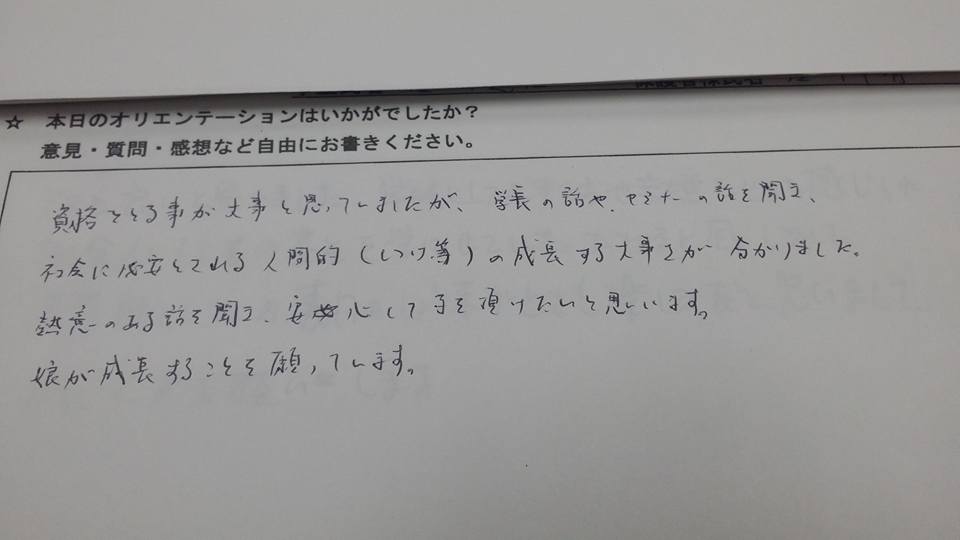 ☆ 本日のオリエンテーションはいかがでしたか？
意見・質問・感想など自由にお書きください。
資格をとる事が大事と思っていましたが、学長の話や、セミナーの話を聞き、
社会に必要とされる人間的（しつけ等）の成長する大事さが分かりました。
熱意のある話を聞き、安心して子を預けたいと思います。
娘が成長することを願っています。